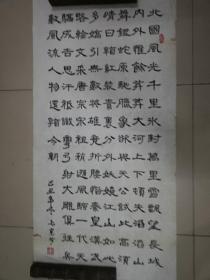 北國風光千里冰封萬里雪飄望長城
内外惟餘莽莽大河上下頓失滔滔山
舞銀蛇原馳臘象欲與天公試比高須
晴日看紅裝素裹分外妖嬈江山如此
多嬌引無數英雄競折腰惜秦皇漢武
略輸文采唐宗宋祖稍遜風騷一代天
驕成吉思汗祗識彎弓射大雕俱往矣
數風流人物還看今朝
己丑年冬